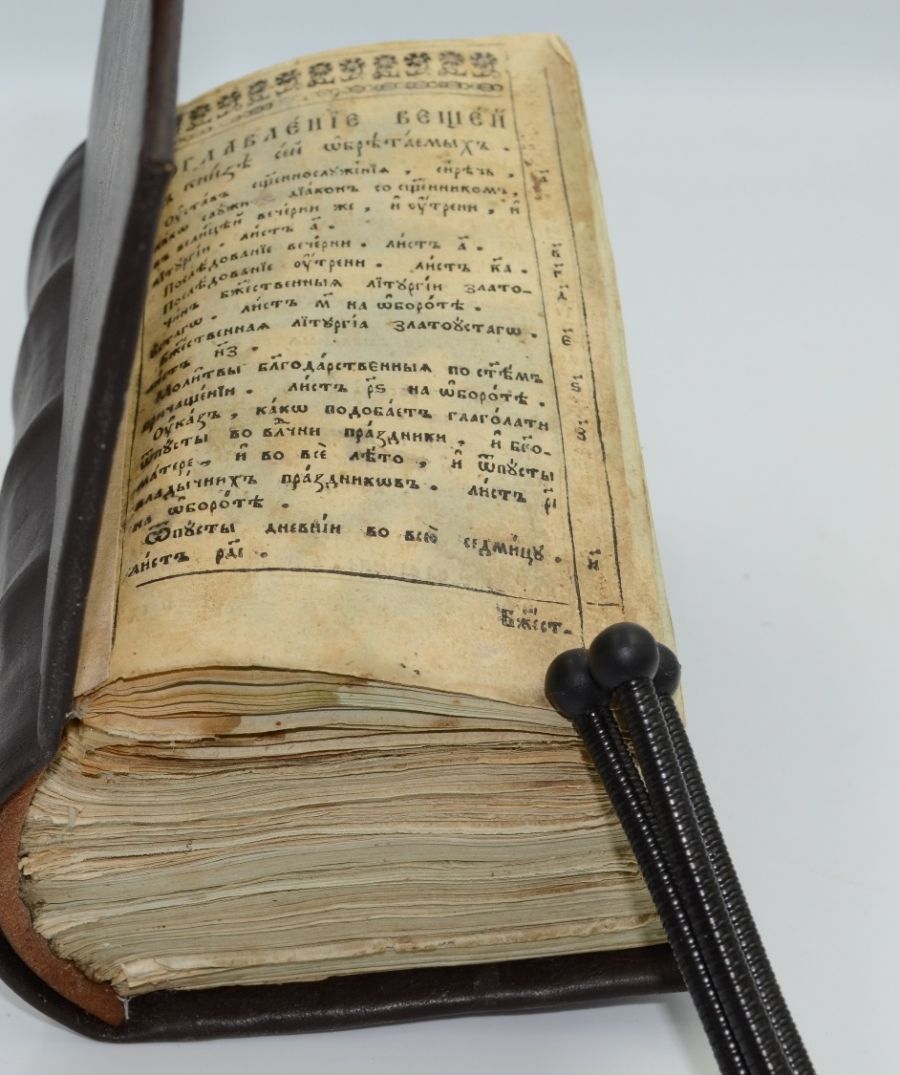 ОГЛАВЛЕ́НЇЕ ВЕЩЕ́Й
кни́зѣ се́й ѡ҆брѣта́емыхъ .
Оу҆ста́въ сщ҃еннослꙋже́нїѧ , си́рѣчь , а҃
ка́кѡ слꙋжи́ дїа́конъ со сщ҃е́нникомъ ,
въ вели́цѣй вече́рни же , и҆ оу҆́трени , и҆
лїтꙋргі́и . ли́стъ а҃ .
Послѣ́дованїе вече́рни . ли́стъ а҃ . в҃
Послѣ́дованїе оу҆́трени . ли́стъ к҃а . г҃
Чи́нъ бж҃е́ственныѧ лїтꙋргі́и злато- д҃
ꙋ́стагѡ . ли́стъ м҃ на ѡ҆боро́тѣ .
Бж҃е́ственнаѧ лїтꙋргі́а златоꙋ́стагѡ . є҃
ли́стъ н҃з .
Моли҃твы бл҃года́рственныѧ по ст҃ѣ́мъ ѕ҃
причаще́нїи . ли́стъ р҃ѕ на ѡ҆боро́тѣ .
Оу҆ка́зъ , ка́кѡ подоба́етъ глаго́лати
ѿпꙋсты во вл҃чни пра́здники , и҆ бг҃о-
ма́тере , и҆ во всѐ лѣ́то , и҆ ѿпꙋсты
влады́чнихъ пра́здникѡвъ . ли́стъ р҃і
на ѡ҆боро́тѣ .
Ѿпꙋсты дне́внїи во всю̀ седми́цꙋ . и҃
ли́стъ р҃ді .
Бж҃е́ст-